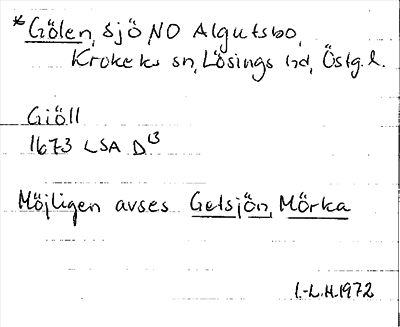 *Gölen, sjö NO Algutsbo,
Krokeks sn, Lösings hd, Östg. l.
Giöll
1673 LSA D13
Möjligen avses Getsjön, Mörka
I.-L.H. 1972